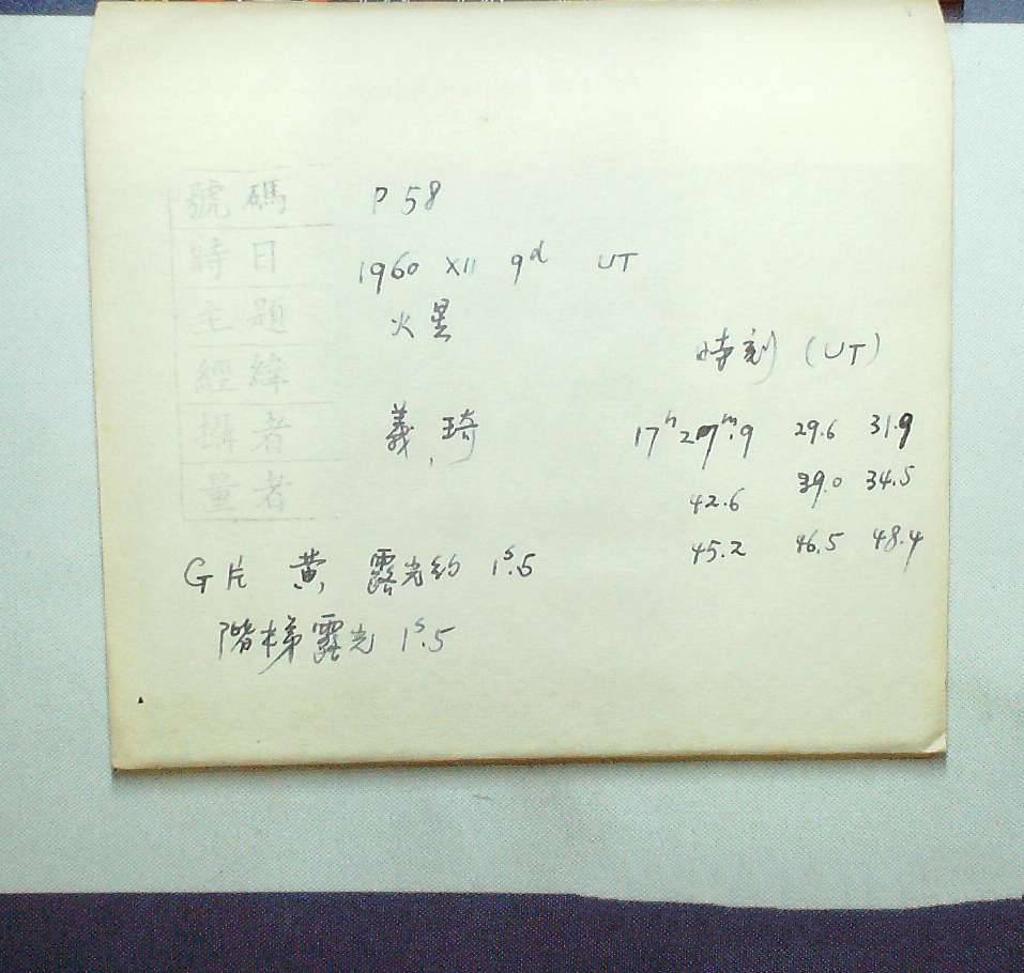 號碼 P 58
時日 1960 XII 9d UT
主題 火星
經緯
時刻 (UT)
攝者 義, 琦
17h 29m.9 29.6 31.9
量者
42.6 39.0 34.5
45.2 46.5 48.4
G片 黄, 露光約 1s.5
階梯露光 1s.5